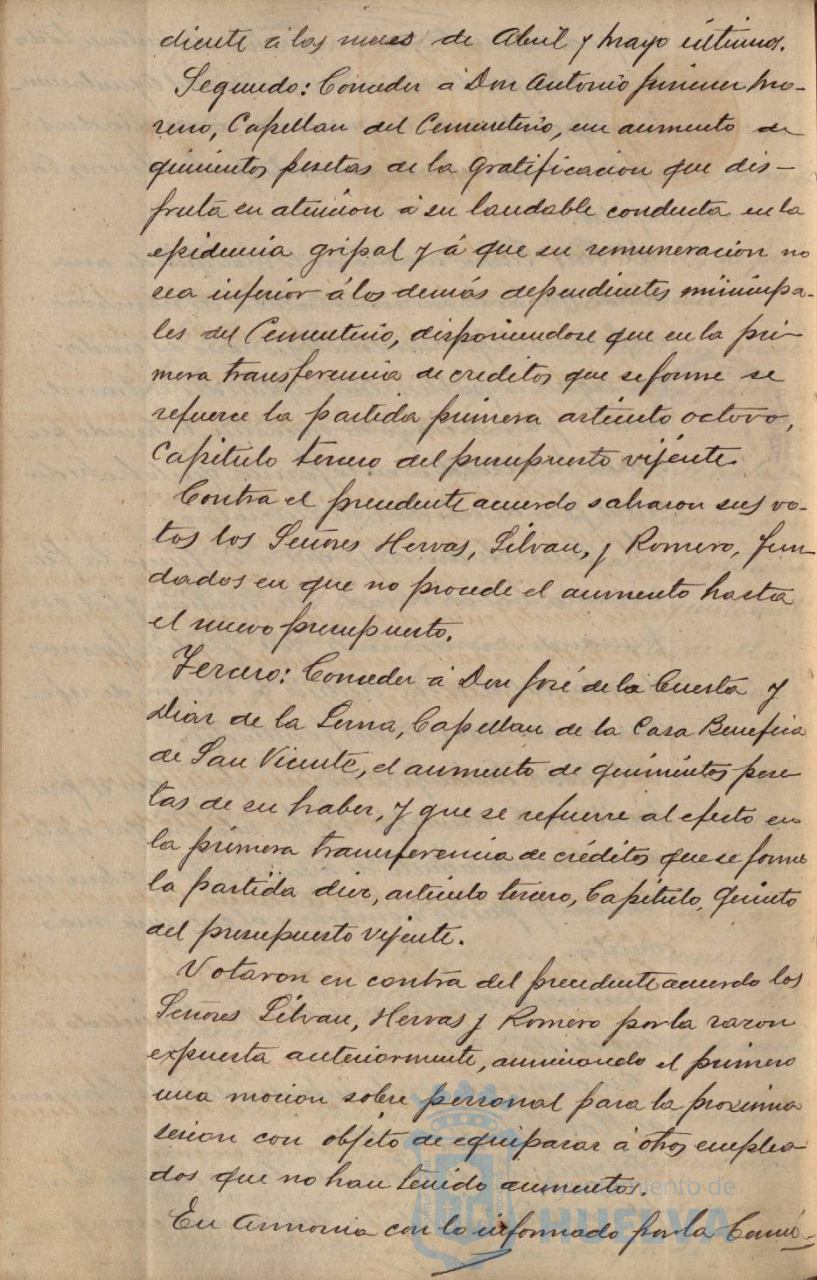 diente á los meses de Abril y Mayo últimos.
Segundo: Conceder á Don Antonio Jimenez Mo-
reno, Capellan del Cementerio, un aumento de
quinientas pesetas de la gratificacion que dis-
fruta en atencion á su laudable conducta en la
epidemia gripal y á que su remuneración no
sea inferior á los demás dependientes municipa-
les del Cementerio, disponiendose que en la pri-
mera transferencia de creditos que se forme se
refuerce la partida primera artículo octovo,
Capitulo tercero del presupuesto vijente.
Contra el precedente acuerdo salvaron sus vo-
tos los Señores Hervas, Silvan, y Romero, fun-
dados en que no procede el aumento hasta
el nuevo presupuesto.
Tercero: Conceder á Don José de la Cuesta y
Diaz de la Serna, Capellan de la Casa Benefica
de San Vicente, el aumento de quinientas pese-
tas de su haber, y que se refuerce al efecto en
la primera transferencia de créditos que se forme
la partida diez, artículo tercero, Capítulo, Quinto
del presupuesto vijente.
Votaron en contra del precedente acuerdo los
Señores Silvan, Hervas y Romero por la razon
expuesta anteriormente, anunciando el primero
una mocion sobre personal para la proxima
sesion con objeto de equiparar á otros emplea-
dos que no han tenido aumentos.
En Armonia con lo informado por la Comi-
Ayuntamiento de
HUELVA